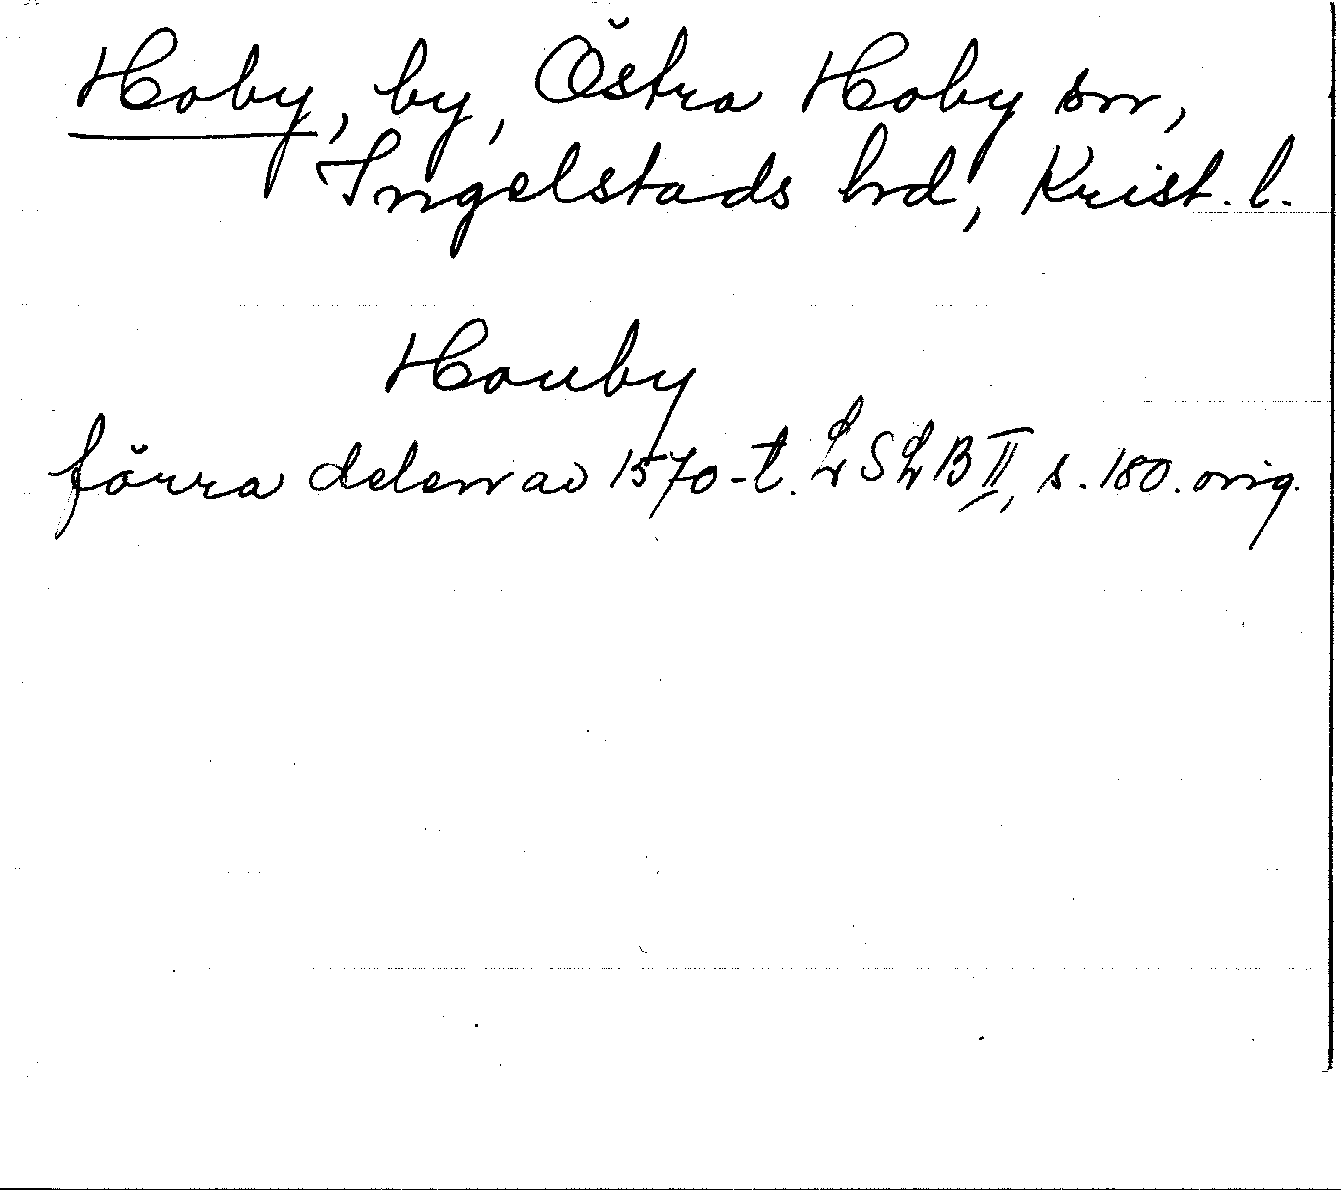 Hoby, by, Östra Hoby sn,
Ingelstads hd, Krist. l.
Houby
förra delen av 1570-t. LSLB II, s. 180. orig.